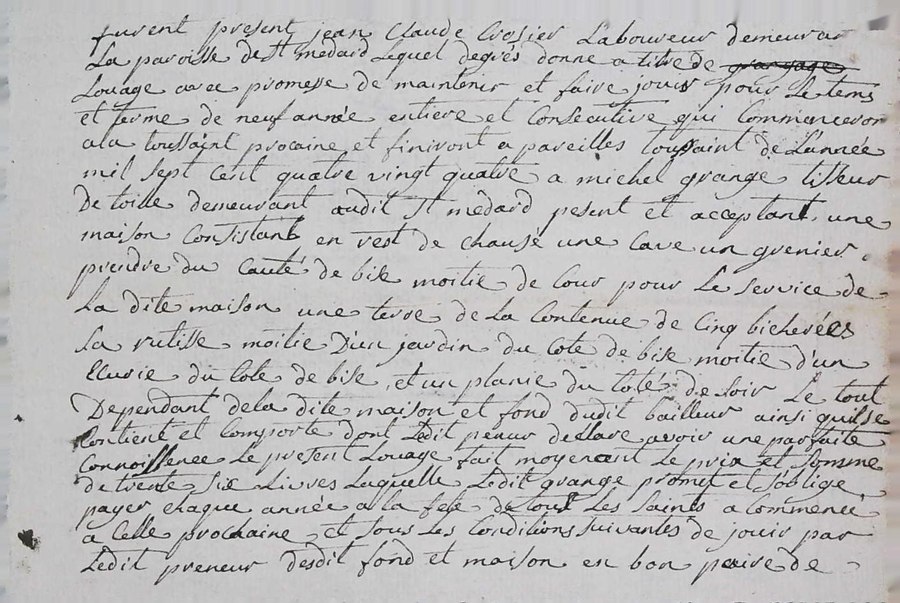 furent present jean Claude Crosier Laboureur demeurar
La paroisse de St medard Lequel degrés donne a titre de grangage
Louage avec promesse de maintenir et faire jouir pour Le tems
et terme de neuf année entiere et Consecutive qui Commenceron
a La toussaint procaine et finiront a pareilles toussaint de L'année
mil sept Cent quatre vingt quatre a michel grange tisseur
De toille demeurant audit St medard pesent et acceptant, une
maison Consistant en rest de chausé une Cave un grenier a
prendre du Cauté de bise moitie de Cour pour Le service de
La dite maison une terre de La Contenue de Cinq bicherées
La rutisse moitie D'un jardin du Cote de bise moitie d'un
Ecurie du Cote de bise, et un planie du Coté de soir Le tout
Dependant de la dite maison et fond dudit bailleur ainsi quil se
Contient et Comporte dont Ledit penur deslare avoir une parfaite
Connoissenee Le present Louage fait moyenent Le prix et somme
de trente six Livres Laquelle Ledit grange promet et soblige
payer chaque année a La fete de tous Les Saints a Commencé
a Celle prochaine, et sous Les Conditions suivantes de jouir par
Ledit preneur desdit fond et maison en bon paire de